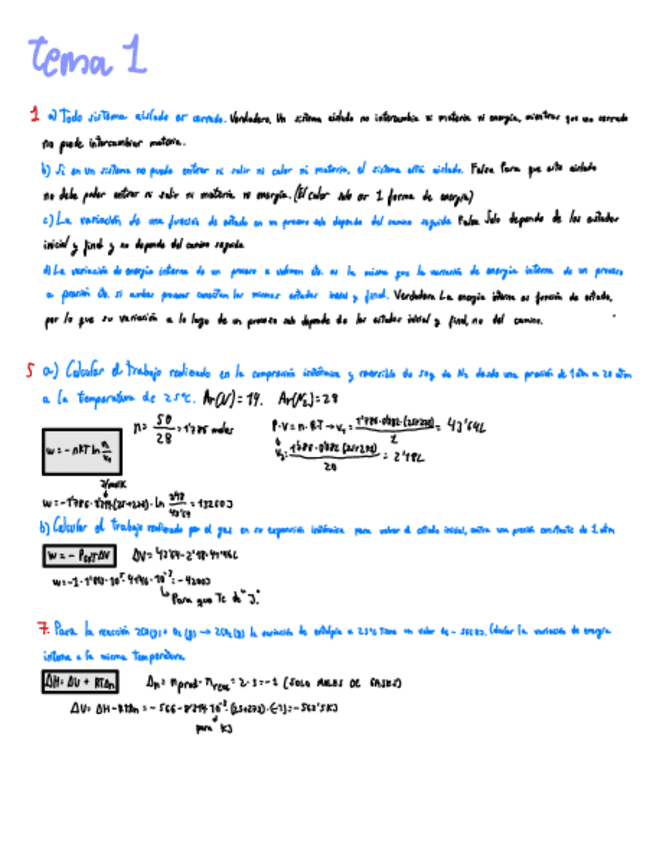 tema 1
1 a) Todo sistema aislado es cerrado. Verdadera. Un sistema aislado no intercambia ni materia ni energía, mientras que uno cerrado
no puede intercambiar materia.
b) Si en un sistema no puede entrar ni salir ni calor ni materia, el sistema está aislado. Falsa Para que esté aislado
no debe poder entrar ni salir ni materia ni energía. (El calor solo es 1 forma de energía)
c) La variación de una función de estado en un proceso solo depende del camino seguido Falsa Solo depende de los estados
inicial y final y no depende del camino seguido
d) La variación de energía interna de un proceso a volumen cte. es la misma que la variación de energía interna de un proceso
a presión cte. si ambos procesos conectan los mismos estados inicial y final. Verdadera La energía interna es función de estado,
por lo que su variación a lo largo de un proceso solo depende de los estados inicial y final, no del camino.
5 a) Calcular el trabajo realizado en la compresión isotérmica y reversible de 50g de N₂ desde una presión de 1 atm a 20 atm
a la temperatura de 25ºC. Ar(N)=14. Ar(N₂)=28
n= 50/28 =1'786 moles
P·V=n·R·T→V₁= 1'786·0'082·(25+273)/1 = 43'64L
V₂= 1'786·0'082·(25+273)/20 = 2'18L
w=-nRT ln
J/molK
w=-1'786·8'314·(25+273)·ln 2'18/43'64 =13260J
b) Calcular el trabajo realizado por el gas en su expansión isotérmica para volver al estado inicial, contra una presión constante de 1 atm
w=-P ΔV ΔV=43'64-2'18=41'46L
w=-1·1'013·10⁵·41'46·10⁻³=-4200J
Para que Te de "J".
7. Para la reacción 2CO(g)+O₂(g)→2CO₂(g) la variación de entalpía a 25ºC tiene un valor de -566 KJ. Calcular la variación de energía
interna a la misma temperatura
ΔH=ΔU+RTΔn Δn=nprod-nreac=2-3=-1 (SOLO MOLES DE GASES)
ΔU=ΔH-RTΔn=-566-8'314·10⁻³·(25+273)·(-1)=-563'5KJ
para KJ